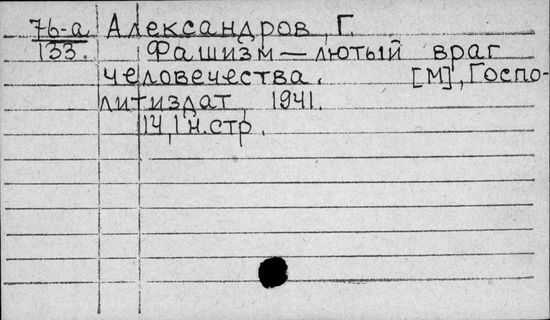 76-а Александров, Г.
133. Фашизм — лютый враг
человечества. [М], Госпо-
литиздат, 1941.
14,1 н.стр.